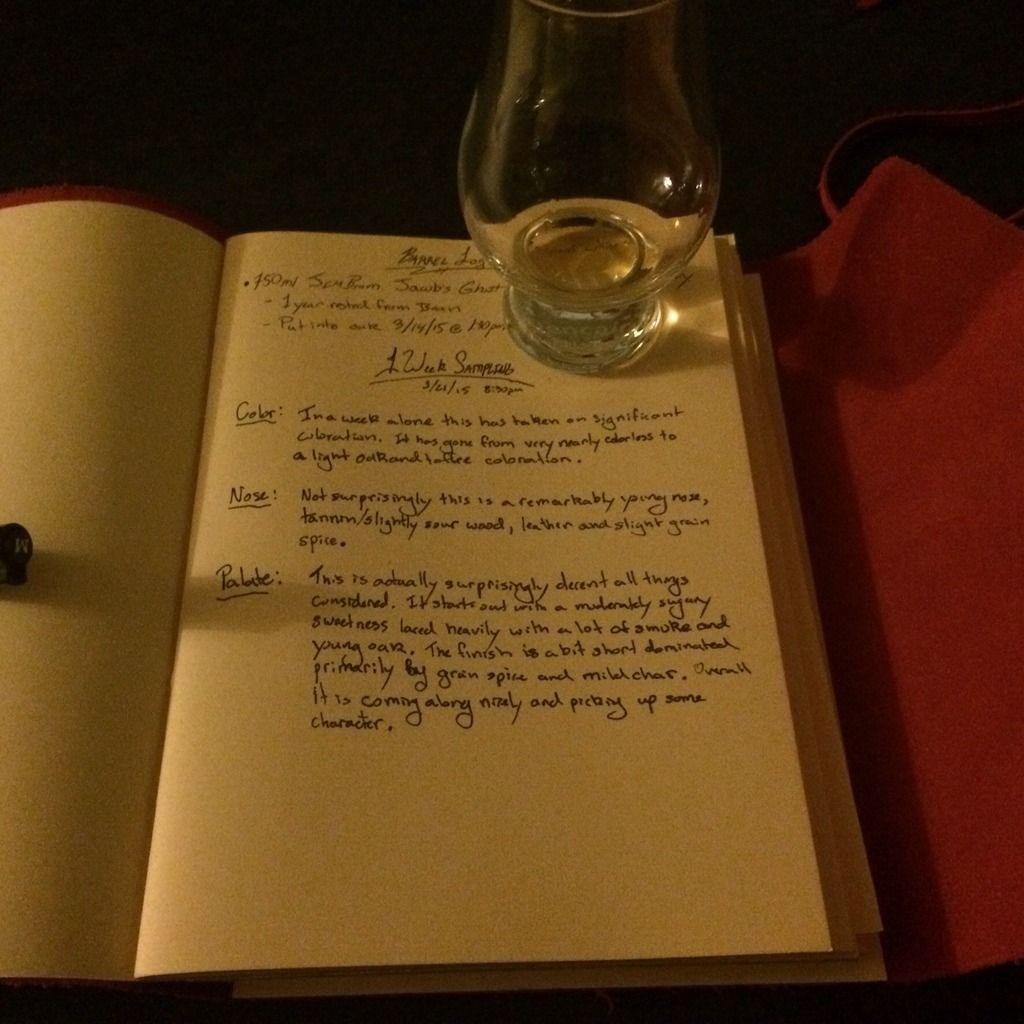 Barrel Log
• 750ml Jim Beam Jacob's Ghost
- 1 year rested from Beam
- Put into oak 3/14/15 @ 1:30pm
1 Week Sampling
3/21/15 8:30pm
Color: In a week alone this has taken on significant
coloration. It has gone from very nearly colorless to
a light oak and toffee coloration.
Nose: Not surprisingly this is a remarkably young nose,
tannin/slightly sour wood, leather and slight grain
spice.
Palate: This is actually surprisingly decent all things
considered. It starts out with a moderately sugary
sweetness laced heavily with a lot of smoke and
young oak. The finish is a bit short dominated
primarily by grain spice and mild char. Overall
it is coming along nicely and picking up some
character.
M